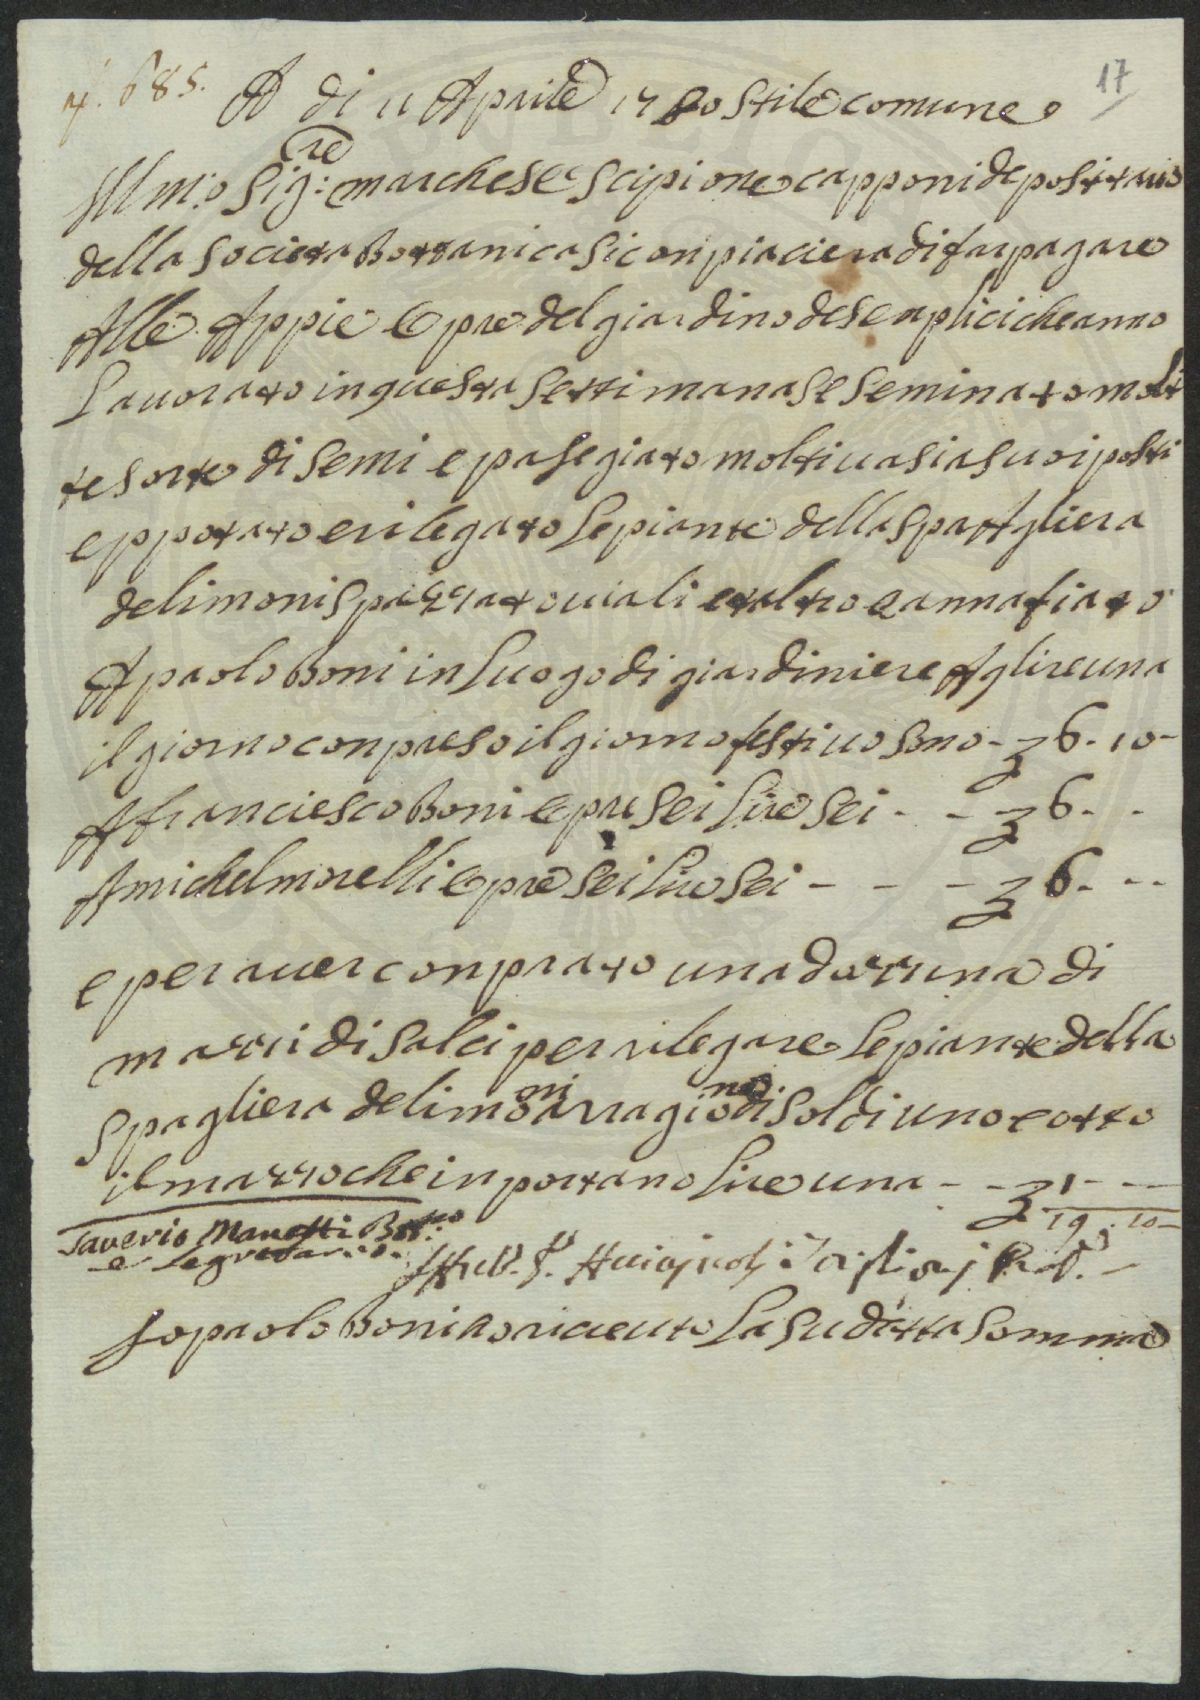 n. 685.
17
A dì 11 Aprile 1750 stile comune
Illm:o Sig:re marchese scipione capponi depositario
della societa Bottanica si conpiaciera di far pagare
Alle Appie Opre del giardino de senplici che anno
Lavorato in questa settimana se seminato molt
te sorte di semi e pasegiato molti vasi a suoi posti
e ppotato e rilegato le piante della spaAgliera
de limoni spazzato viali et altro e annafiato
A paolo Boni in luogo di giardiniere A glire una
il giorno conpreso il giorno festivo sono - £ 6. 10 -
A franciesco Boni opre sei lire sei - - £ 6. - -
A michel morelli opre sei lire sei - - - £ 6. - -
e per aver conprato una dozzina di
mazzi di salci per rilegare le piante della
spagliera de limoni arragione di soldi uno e otto
il mazzo che inportano lire una - - £ 1 - -
19. 10 -
Saverio Manetti Bot:co
e Segretario
Io paolo Boni ho ricieuto la sudetta somma